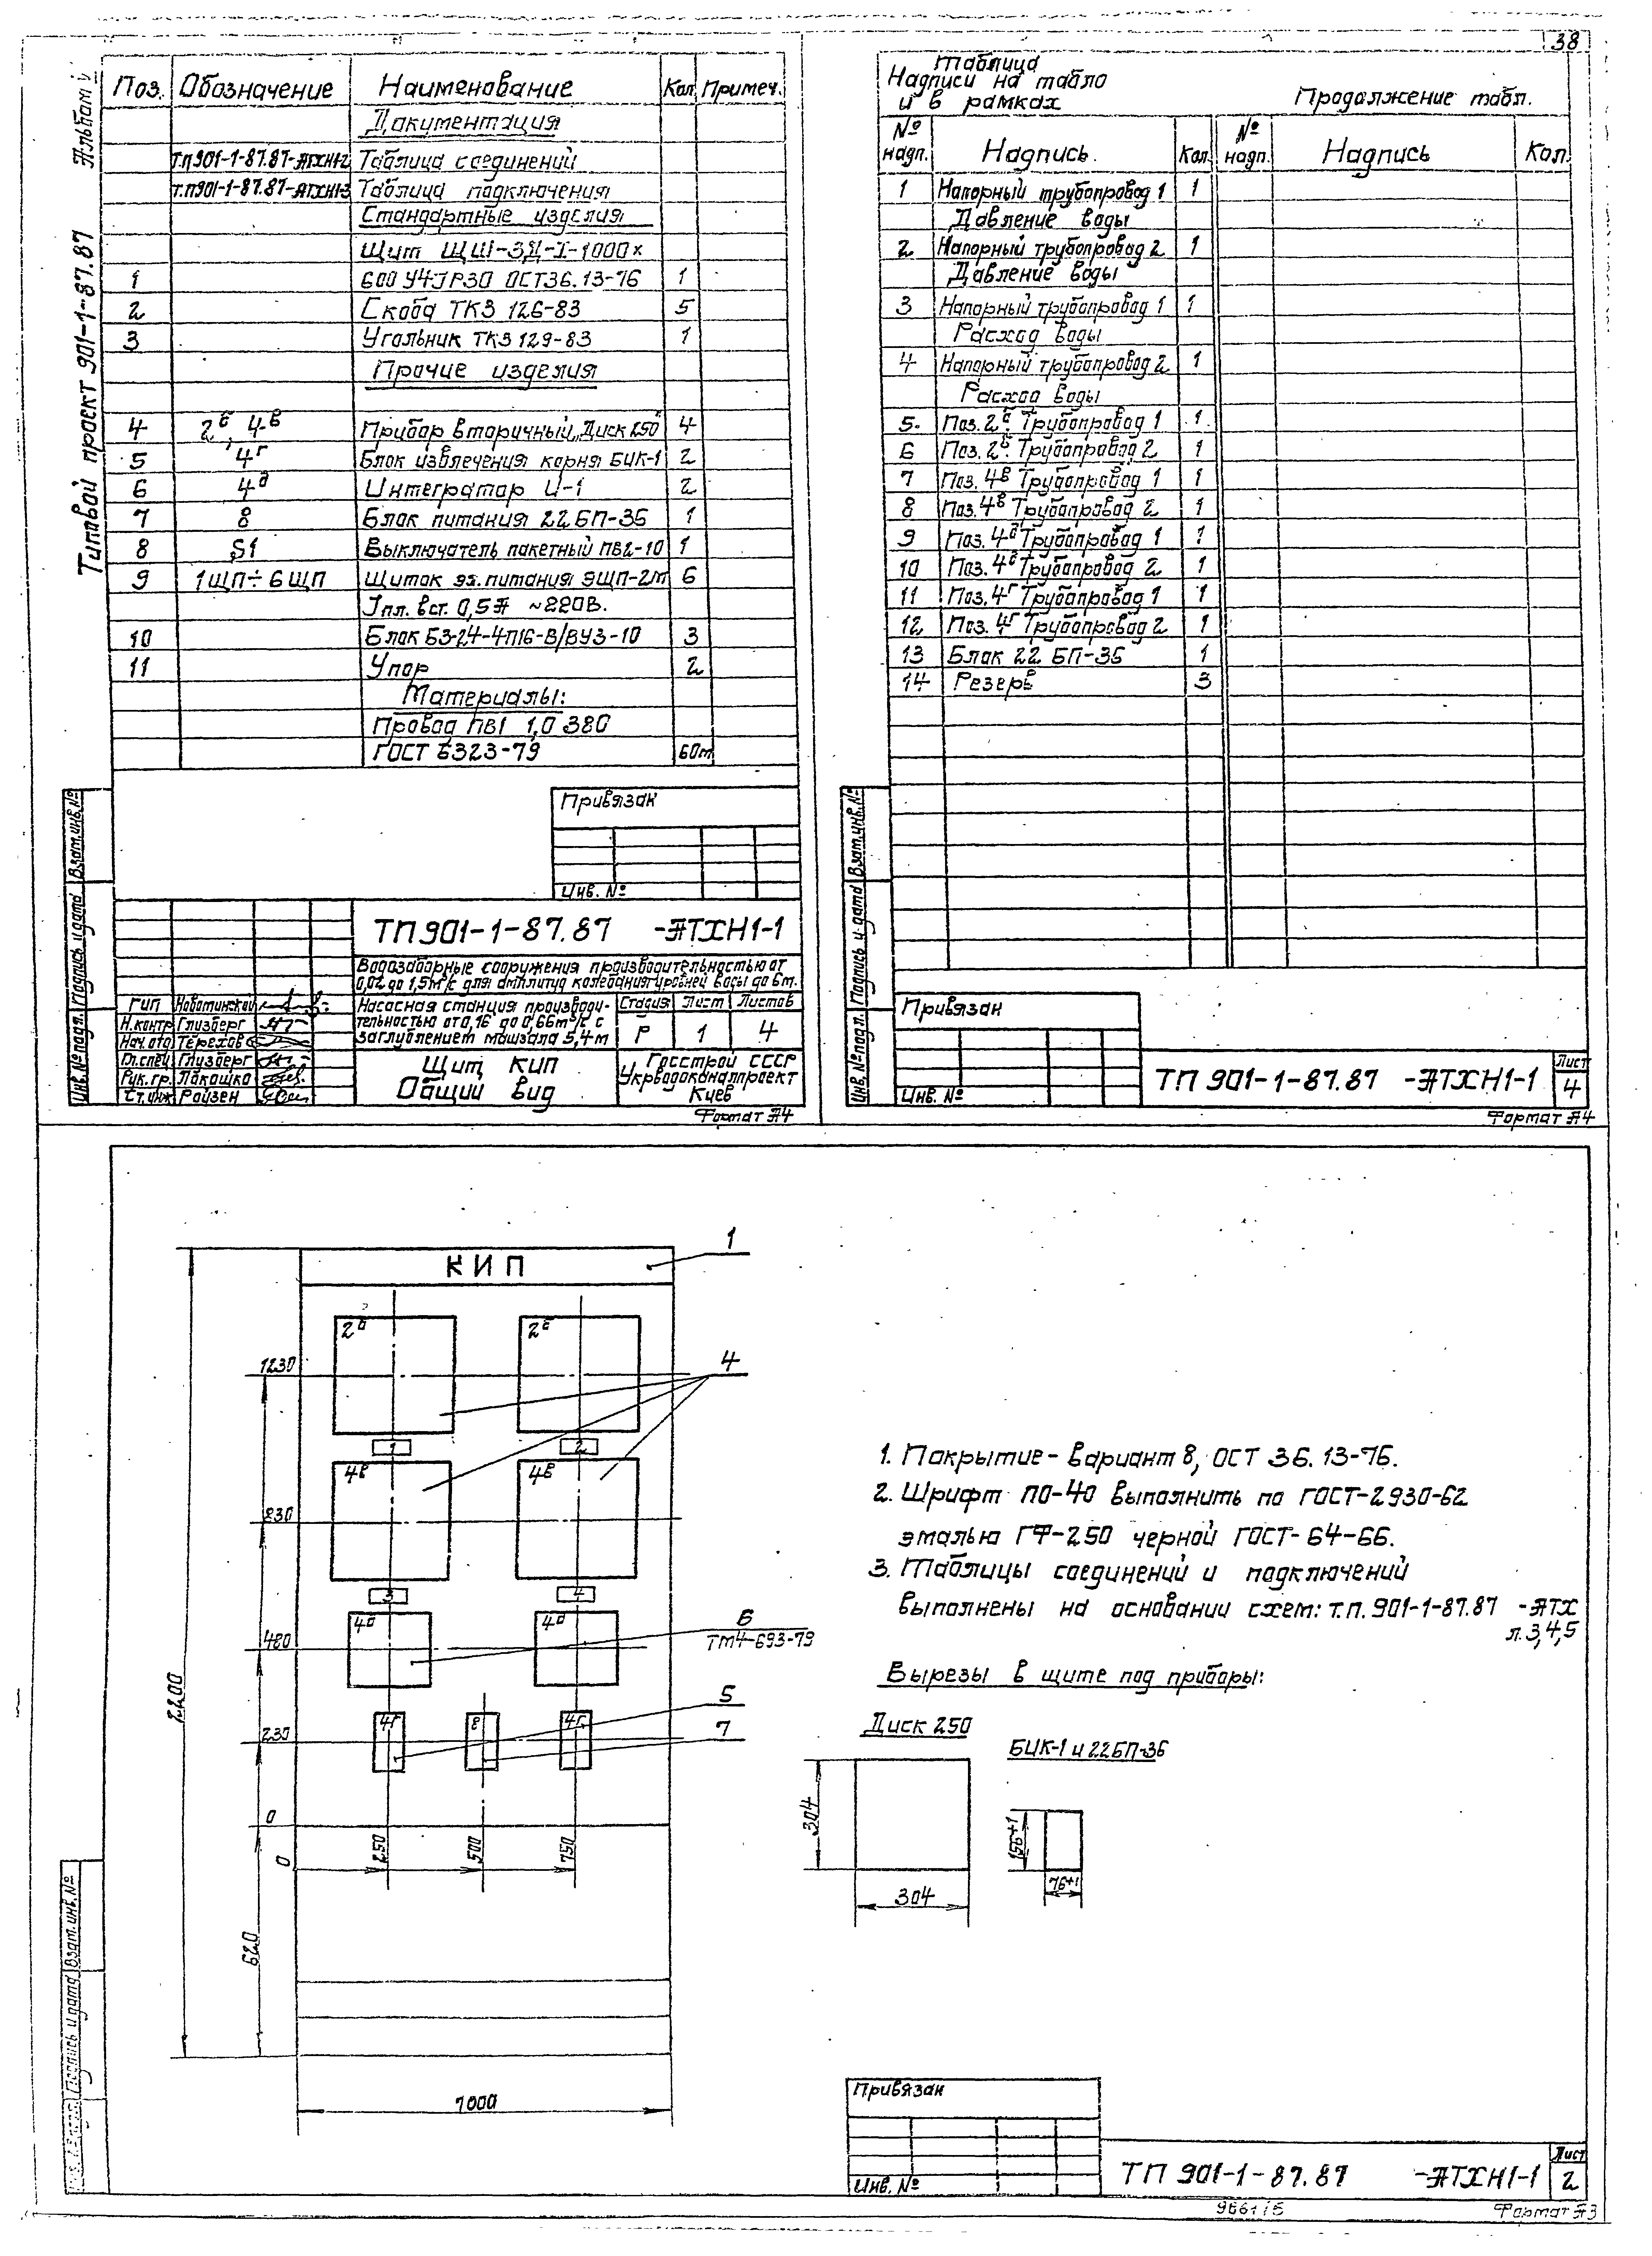 38
Альбом
Типовой проект 901-1-87.87
Поз. Обозначение Наименование Кол. Примеч.
Документация
ТП901-1-87.87-АТХН1-2 Таблица соединений
Т.П901-1-87.87-АТХН1-3 Таблица подключения
Стандартные изделия
Щит ЩШ-ЗД-I-1000х
1 600 У4 IP30 ОСТ36.13-76 1
2 Скоба ТК3 126-83 5
3 Угольник ТК3 129-83 1
Прочие изделия
4 2б, 4в Прибор вторичный „Диск 250" 4
5 4г Блок извлечения корня БИК-1 2
6 4д Интегратор И-1 2
7 8 Блок питания 22 БП-36 1
8 S1 Выключатель пакетный ПВ2-10 1
9 1ЩП÷6ЩП Щиток эл. питания ЭЩП-2м 6
Jпл. вст. 0,5А ~220В.
10 Блок БЗ-24-4П16-В/ВУЗ-10 3
11 Упор 2
Материалы:
Провод ПВ1 1,0 380
ГОСТ 6323-79 60м
Привязан
Инв. №
ТП901-1-87.87 -АТХН1-1
Водозаборные сооружения производительностью от
0,02 до 1,5м³/с для амплитуд колебания уровней воды до 6м.
ГИП Новатинский
Н.контр Глизберг
Нач.отд Терехов
Гл.спец Глизберг
Рук.гр. Лакошко
Ст.инж Ройзен
Насосная станция производи-
тельностью от 0,16 до 0,66м³/с с
заглублением машзала 5,4м
Стадия Лист Листов
Р 1 4
Щит КИП
Общий вид
Госстрой СССР
Укрводоканалпроект
Киев
Формат А4
Инв.№ подл. Подпись и дата Взам.инв.№
Таблица
Надписи на табло
и в рамках
Продолжение табл.
№ надп. Надпись. Кол. № надп. Надпись Кол.
1 Напорный трубопровод 1 1
Давление воды
2 Напорный трубопровод 2 1
Давление воды
3 Напорный трубопровод 1 1
Расход воды
4 Напорный трубопровод 2 1
Расход воды
5. Поз. 2б Трубопровод 1 1
6 Поз. 2б Трубопровод 2 1
7 Поз. 4в Трубопровод 1 1
8 Поз. 4в Трубопровод 2 1
9 Поз. 4д Трубопровод 1 1
10 Поз. 4д Трубопровод 2 1
11 Поз. 4г Трубопровод 1 1
12 Поз. 4г Трубопровод 2 1
13 Блок 22 БП-36 1
14 Резерв 3
Инв.№ подл. Подпись и дата Взам.инв.№
Привязан
Инв. №
ТП 901-1-87.87 -АТХН1-1
Лист
4
Формат А4
КИП
1
2б 2б
1230
4
1 2
4в 4в
830
3 4
4д 4д
480
6
ТМ4-693-79
4г 8 4г
230
5
7
0
0 250 500 750
2200
620
1000
1. Покрытие - вариант 8, ОСТ 36.13-76.
2. Шрифт ПО-40 выполнить по ГОСТ-2930-62
эмалью ГФ-250 черной ГОСТ-64-66.
3. Таблицы соединений и подключений
выполнены на основании схем: т.п. 901-1-87.87 -АТХ
л.3,4,5
Вырезы в щите под приборы:
Диск 250
304
304
БИК-1 и 22БП-36
156+1
76+1
Подпись и дата Взам.инв.№
Привязан
Инв. №
ТП 901-1-87.87 -АТХН1-1
Лист
2
Формат А3